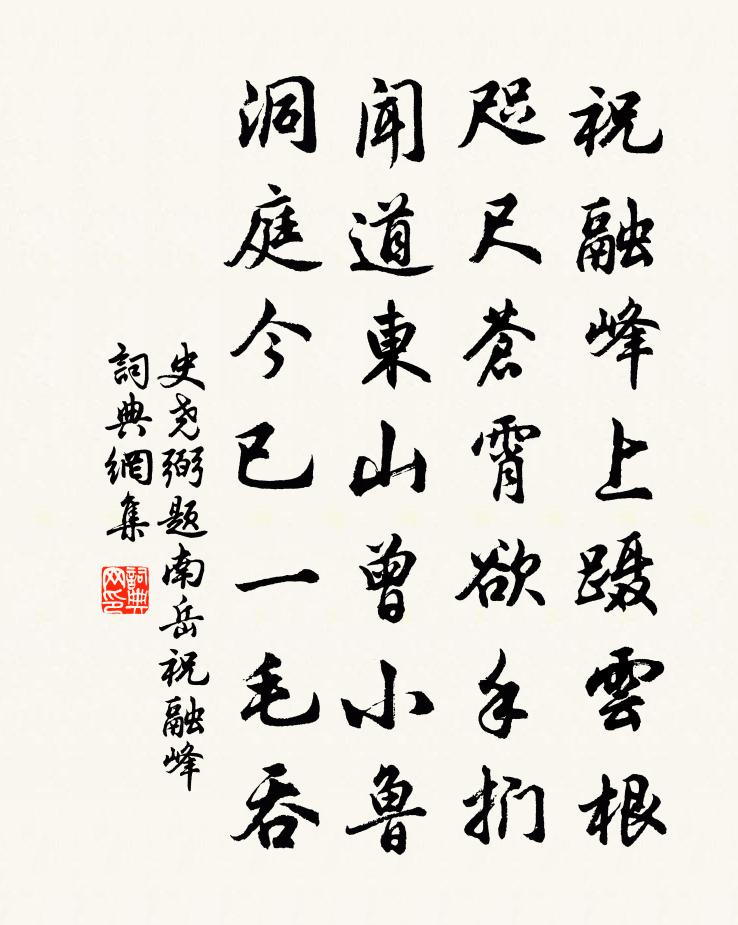 祝融峰上蹑雲根
咫尺蒼霄欲手扪
闻道東山曾小魯
洞庭今已一毛吞
史尧弼题南岳祝融峰
詞典網集
詞典网印